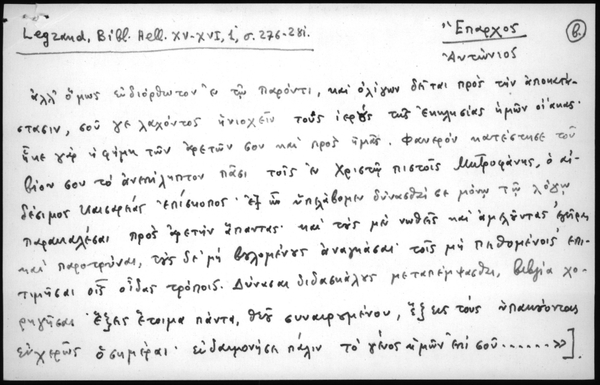 Legrand, Bibl. Hell. XV-XVI, 1, σ. 276-281.
Ἔπαρχος
β.
Ἀντώνιος
ἀλλ' ὅμως εὐδιόρθωτον ἐν τῷ παρόντι, καὶ ὀλίγων δεῖται πρὸς τὴν ἀποκατά-
στασιν, σοῦ γε λαχόντος ἡνιοχεῖν τοὺς ἱεροὺς τῆς ἐκκλησίας ἡμῶν οἴακας·
ἧκε γὰρ ἡ φήμη τῶν ἀρετῶν σου καὶ πρὸς ἡμᾶς. Φανερὸν κατέστησε τοῦ
βίου σου τὸ ἀνεπίληπτον πᾶσι τοῖς ἐν Χριστῷ πιστοῖς Μητροφάνης, ὁ αἰ-
δέσιμος Καισαρείας ἐπίσκοπος· ἐξ ὧν ὑπελάβομεν δύνασθαί σε μόνῳ τῷ λόγῳ
παρακαλέσαι πρὸς ἀρετὴν ἅπαντας· καὶ τοὺς μὲν νωθεῖς καὶ ἀμελοῦντας ἐγεῖραι
καὶ παροτρῦναι, τοὺς δὲ μὴ βουλομένους ἀναγκάσαι· τοῖς μὴ πειθομένοις ἐπι-
τιμῆσαι οἷς οἶδας τρόποις. Δύνασαι διδασκάλους μεταπέμψασθαι, βιβλία χο-
ρηγῆσαι· ἕξεις ἕτοιμα πάντα, θεοῦ συναιρομένου, ἕξεις τοὺς ὑπακούοντας
εὐχερῶς ὁσημέραι· εὐδαιμονήσει πάλιν τὸ γένος ἡμῶν ἐπὶ σοῦ ......»].